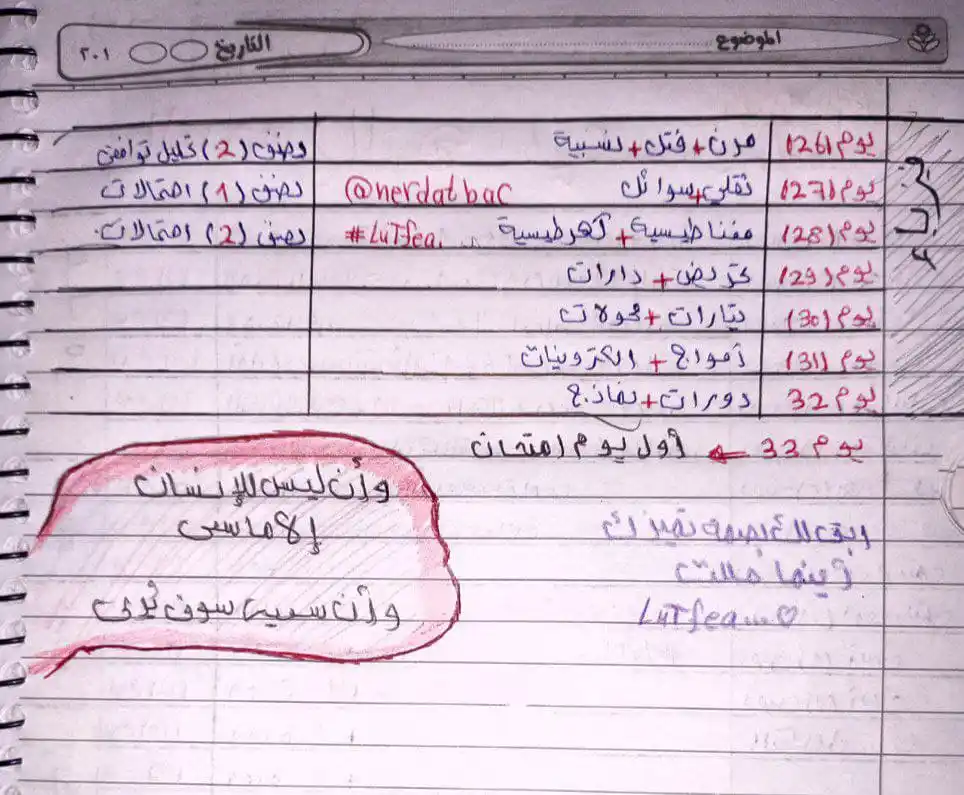 الموضوع
التاريخ ٢٠١
يوم (26) مرن + فتل + نسبية ونصف (2) تحليل توافقي
يوم (27) ثقلي + سوائل @nerdatbac نصف (1) احتمالات
يوم (28) مغناطيسية + كهرطيسية #LuTfea نصف (2) احتمالات
يوم (29) تحريض + دارات
يوم (30) تيارات + محولات
يوم (31) أمواج + الكترونيات
يوم 32 دورات + نماذج
يوم 33 ← أول يوم امتحان
وأن ليس للإنسان
إلا ما سعى
وأن سعيه سوف يُرى
بصمة تميزك
أينما حللت
LuTfea ♡